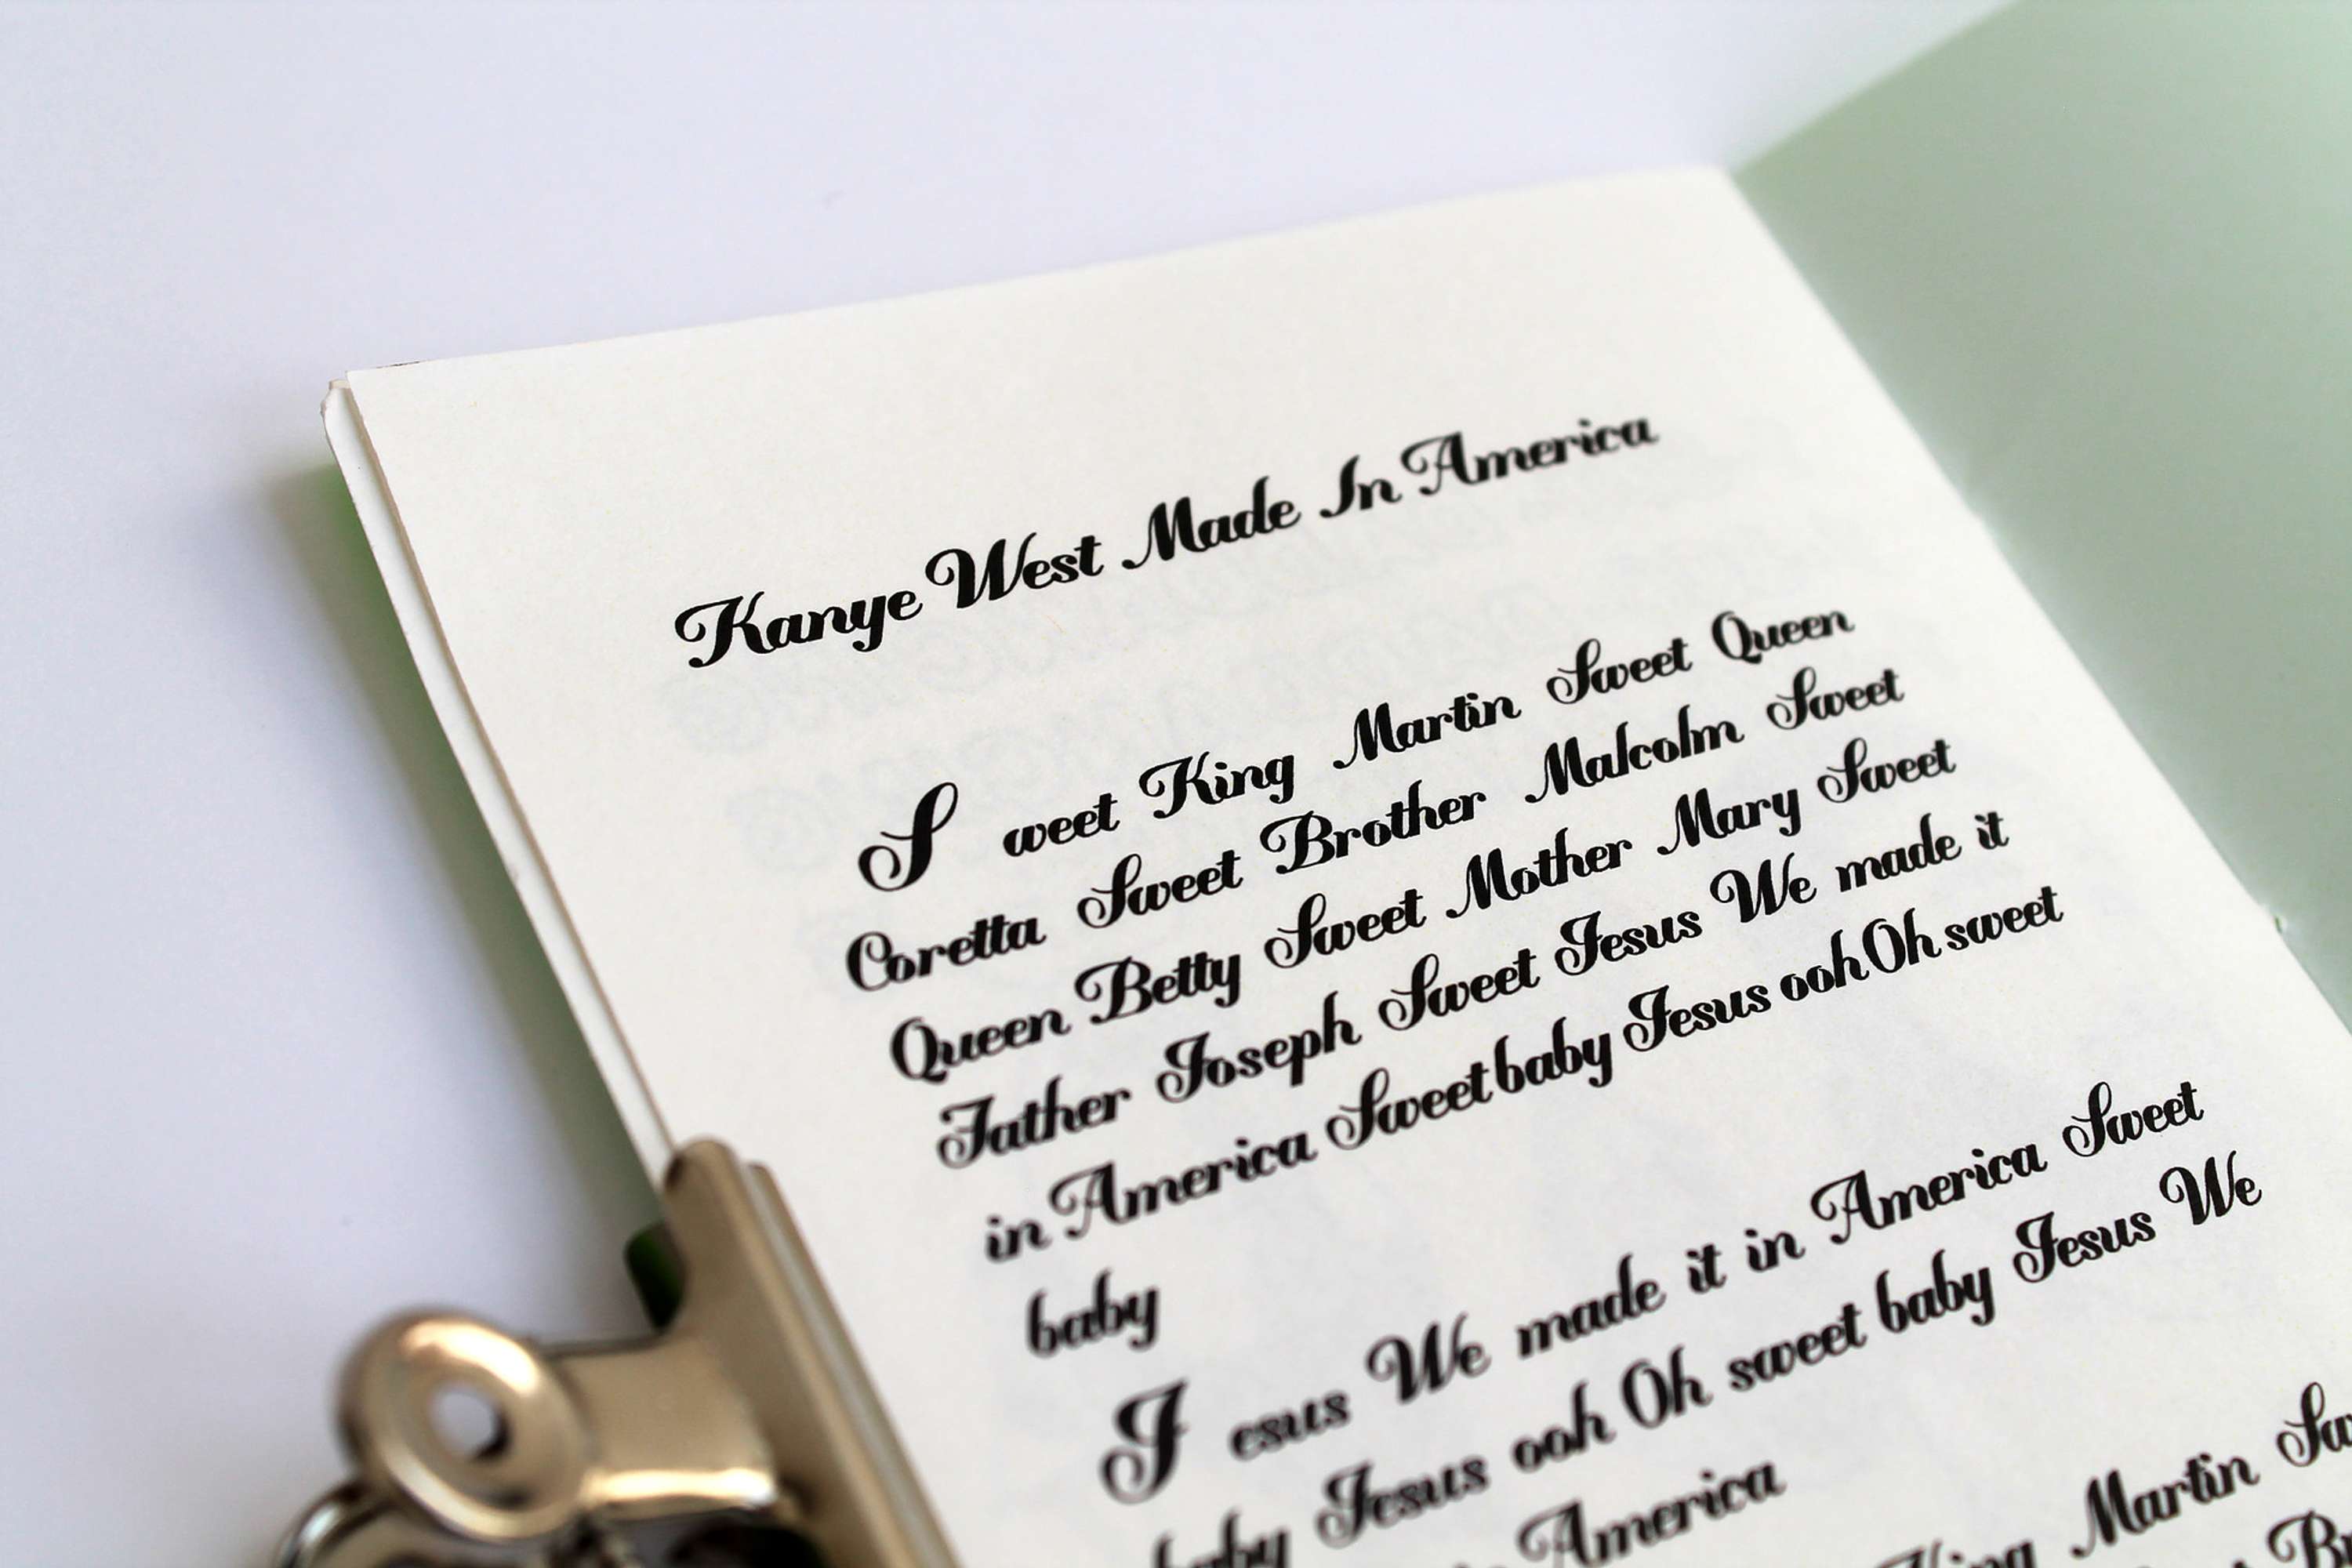 Kanye West Made In America
Sweet King Martin Sweet Queen
Coretta Sweet Brother Malcolm Sweet
Queen Betty Sweet Mother Mary Sweet
Father Joseph Sweet Jesus We made it
in America Sweet baby Jesus ooh Oh sweet
baby
Jesus We made it in America Sweet
baby Jesus ooh Oh sweet baby Jesus We
in America
King Martin